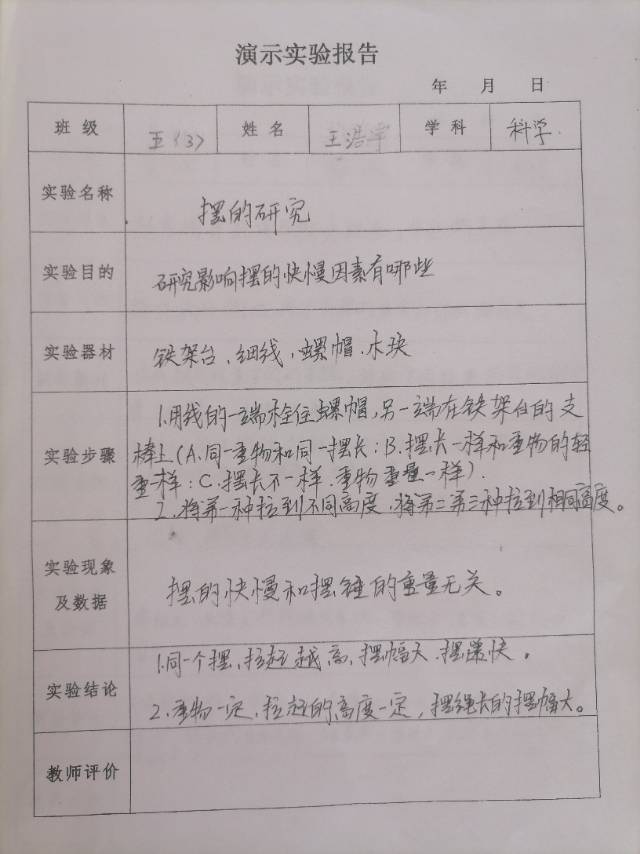 演示实验报告
年 月 日
班级 五（3） 姓名 王浩宇 学科 科学.
实验名称 摆的研究
实验目的 研究影响摆的快慢因素有哪些
实验器材 铁架台、细线、螺帽、木块
实验步骤
1.用线的一端栓住螺帽,另一端在铁架台的支
棒上(A.同一重物和同一摆长:B.摆长一样和重物的轻
重一样:C.摆长不一样.重物重量一样).
2.将第一种拉到不同高度,将第二第三种拉到相同高度。
实验现象及数据 摆的快慢和摆锤的重量无关。
实验结论
1.同一个摆,拉起越高,摆幅大.摆速快。
2.重物一定,拉起的高度一定,摆绳长的摆幅大。
教师评价